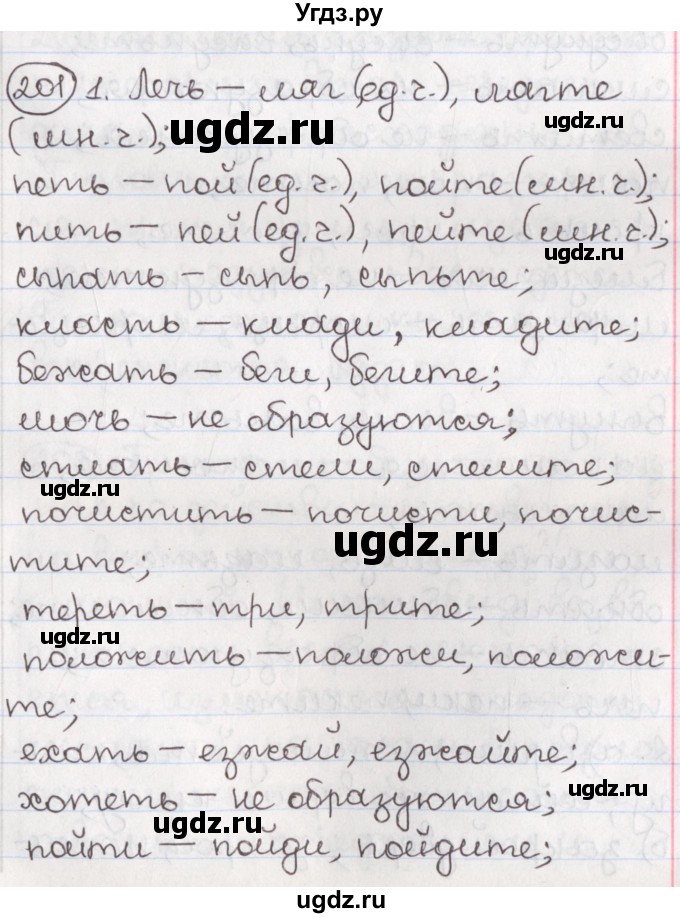 Угдз.ру
201 1. Лечь – ляг (ед.ч.), лягте
(мн.ч.);
петь – пой (ед.ч.), пойте (мн.ч.);
пить – пей (ед.ч.), пейте (мн.ч.);
сыпать – сыпь, сыпьте;
класть – клади, кладите;
бежать – беги, бегите;
мочь – не образуются;
стлать – стели, стелите;
почистить – почисти, почис-
тите;
тереть – три, трите;
положить – положи, положи-
те;
ехать – езжай, езжайте;
хотеть – не образуются;
пойти – пойди, пойдите;
ugdz.ru
ugdz.ru
ugdz.ru
ugdz.ru
ugdz.ru
ugdz.ru
ugdz.ru
ugdz.ru
Угдз.ру